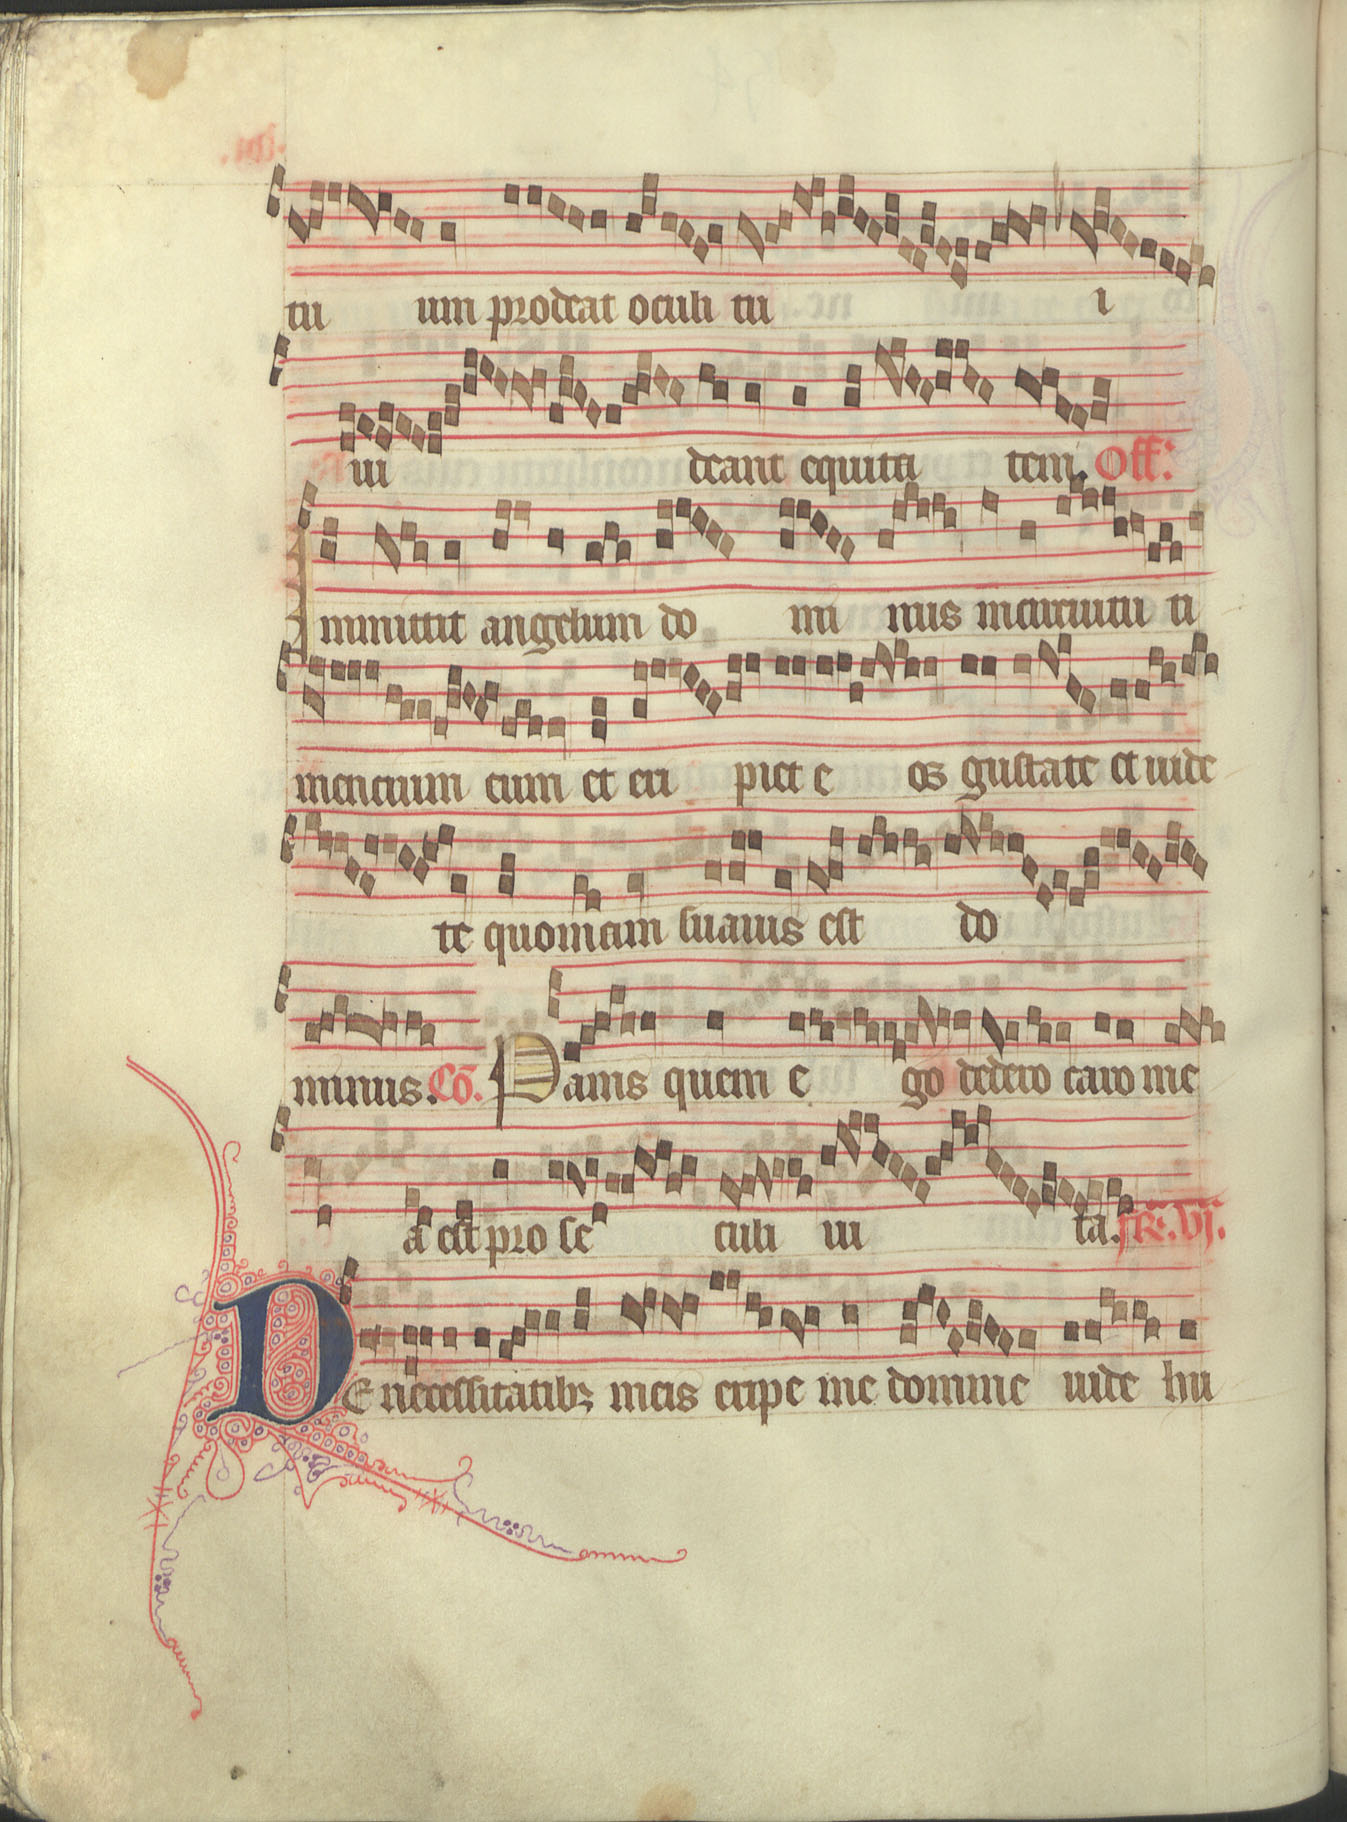 tu um prodeat oculi tu i
ui deant equita tem. Off:
Inmittit angelum do mi nus incircuitu ti
mencium eum et eri piet e os gustate et uide
te quoniam suauis est do
minus. Co. Panis quem e go dedero caro me
a est pro se culi ui ta. fr. vj.
DE necessitatibz meis eripe me domine uide hu